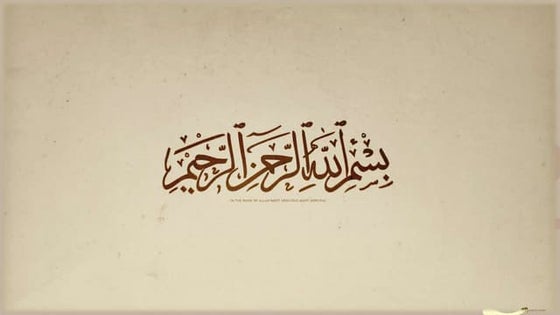 بِسْمِ اللَّهِ الرَّحْمَنِ الرَّحِيمِ
IN THE NAME OF ALLAH MOST GRACIOUS MOST MERCIFUL